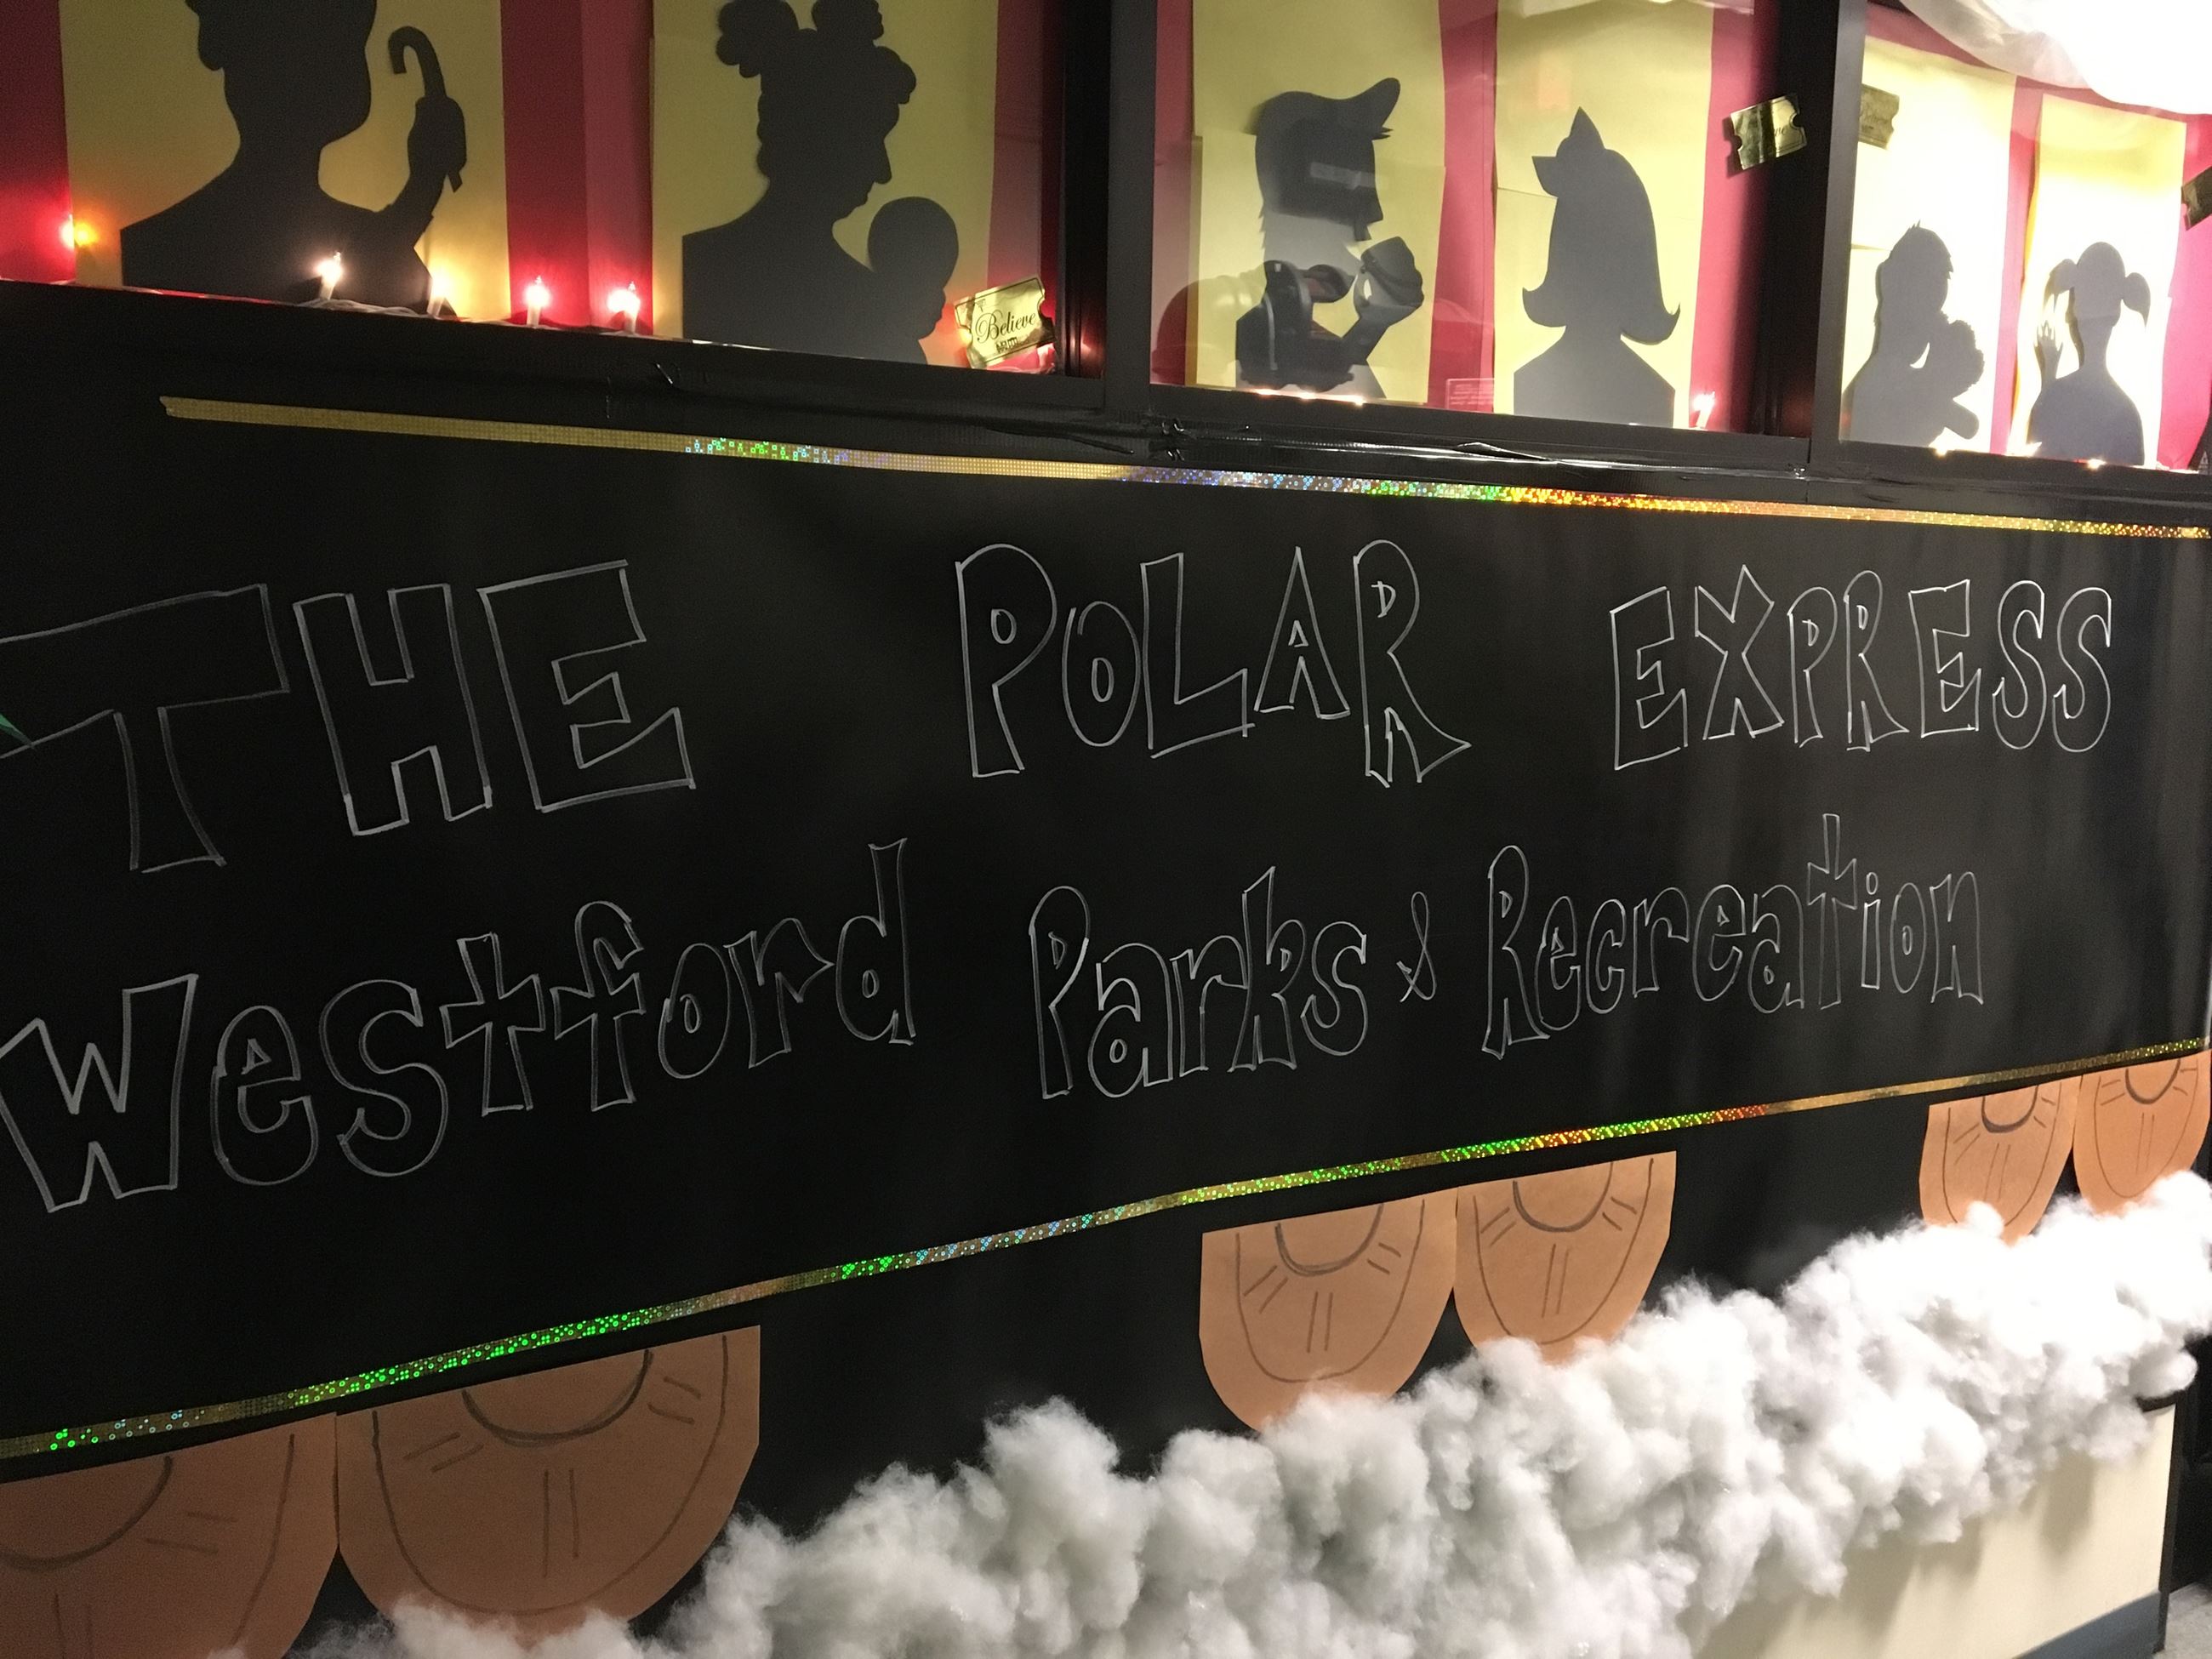 Believe
THE POLAR EXPRESS
Westford Parks & Recreation